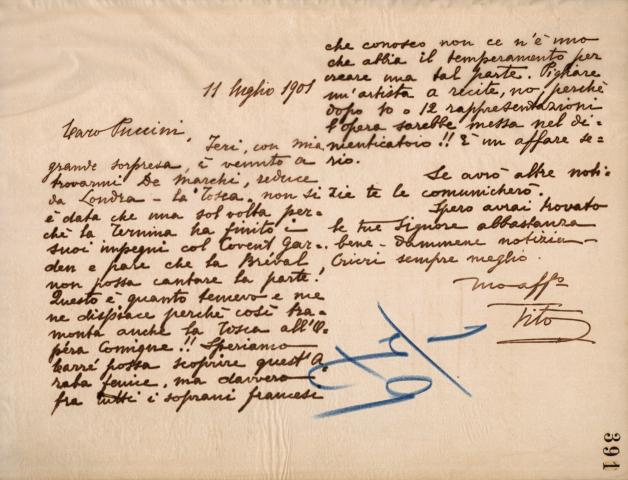 11 luglio 1901
Caro Puccini,
Ieri, con mia
grande sorpresa, è venuto a
trovarmi De Marchi, reduce
da Londra - la Tosca, non si
è data che una sol volta per-
chè la Ternina ha finito i
suoi impegni col Covent Gar-
den e pare che la Bréval
non possa cantare la parte!
Questo è quanto temevo e me
ne dispiace perchè così tra-
monta anche la Tosca all'O-
péra Comique!! Speriamo
Carré possa scoprire quest'A-
raba fenice, ma davvero
fra tutti i soprani francesi
che conosco non ce n'è uno
che abbia il temperamento per
creare una tal parte. Pigliare
un'artista a recite, no, perchè
dopo 10 o 12 rappresentazioni
l'opera sarebbe messa nel di-
menticatoio!! E' un affare se-
rio.
Se avrò altre noti-
zie te le comunicherò.
Spero avrai trovato
le tue Signore abbastanza
bene - dammene notizia -
Cricri sempre meglio.
tuo aff°
Tito
391